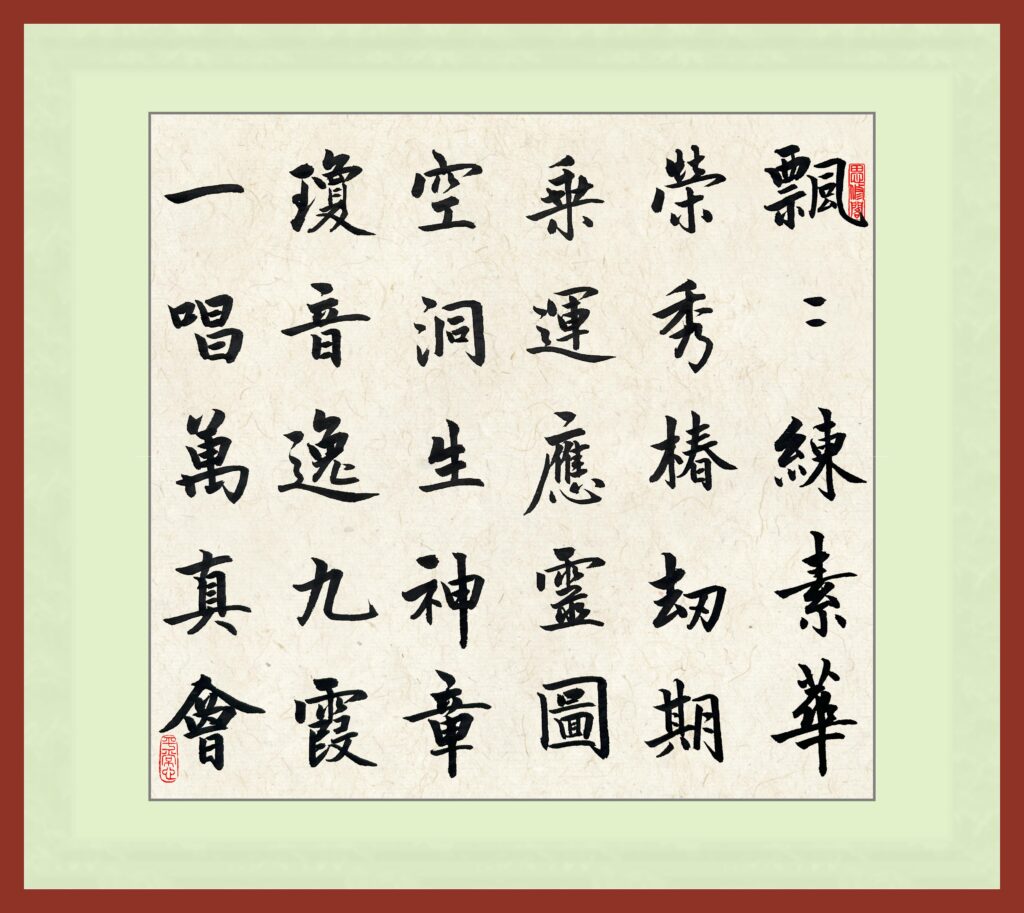 思修閣
飄〻練素華
榮秀椿刼期
乘運應靈圖
空洞生神章
瓊音逸九霞
一唱萬真會
平常心